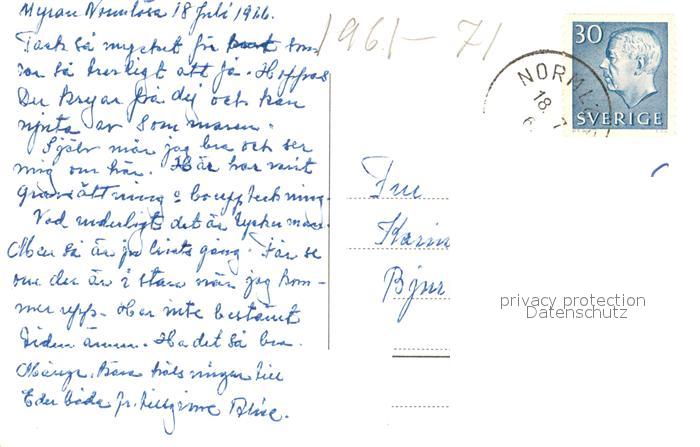 Myran Normlösa 18 Juli 1966.
Tack så mycket för kort som
var så trevligt att få. Hoppas
Du kryar på dig och kan
njuta av sommaren.
Själv mår jag bra och ser
mig om här. Här har varit
gravsättning o bouppteckning.
Vad underligt det är tycker man.
Men så är ju livets gång. Får se
om du är i stan när jag kom-
mer upp. Har inte bestämt
tiden ännu. Ha det så bra.
Många kära hälsningar till
Eder båda fr. tillgivna Alice.
1961-71
30
SVERIGE
NORML
18. 7
6
Fru
Karin
Björ
privacy protection
Datenschutz